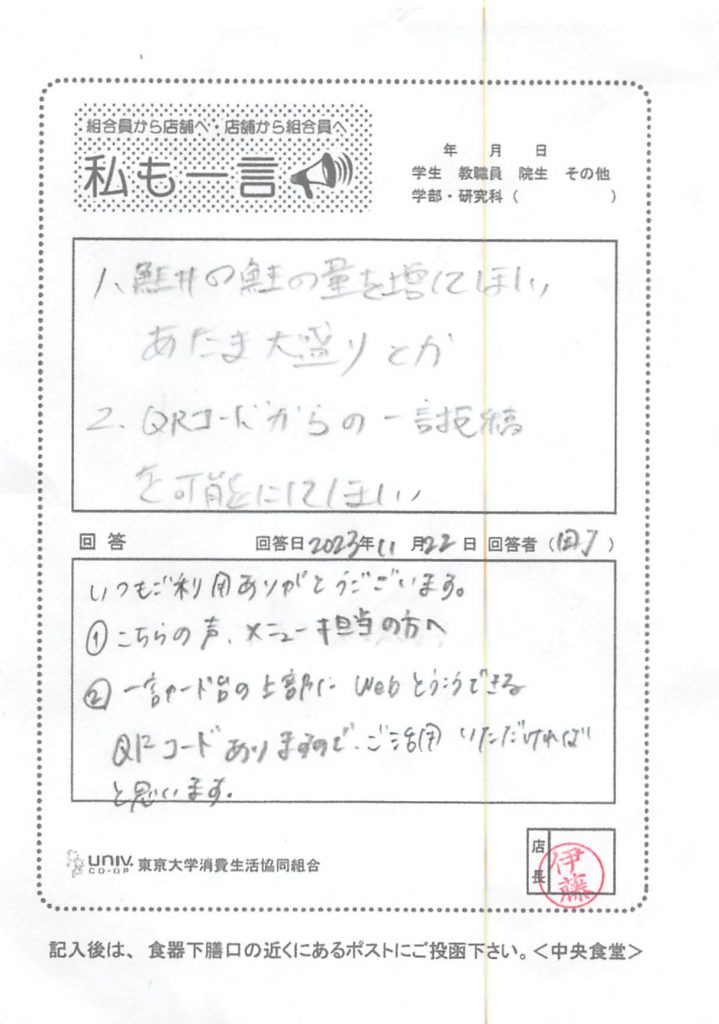 組合員から店舗へ・店舗から組合員へ
私も一言
年 月 日
学生 教職員 院生 その他
学部・研究科( )
1、鮭丼の鮭の量を増してほしい
あたま大盛りとか
2、QRコードからの一言投稿
を可能にしてほしい
回答 回答日2023年11月22日 回答者( )
いつもご利用ありがとうございます。
①こちらの声、メニュー担当の方へ
②一言カード台の上部に Webとうこうできる
QRコードありますので、ご活用いただければ
と思います。
店長
伊藤
UNIV. CO-OP 東京大学消費生活協同組合
記入後は、食器下膳口の近くにあるポストにご投函下さい。＜中央食堂＞